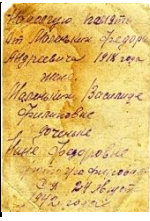 На долгую память
От Маленьких Федора
Андреевича 1918 года
жене
Маленьких Василице
Филиповне
доченьке
Нине Федоровне
фотографировался
24
1942 года